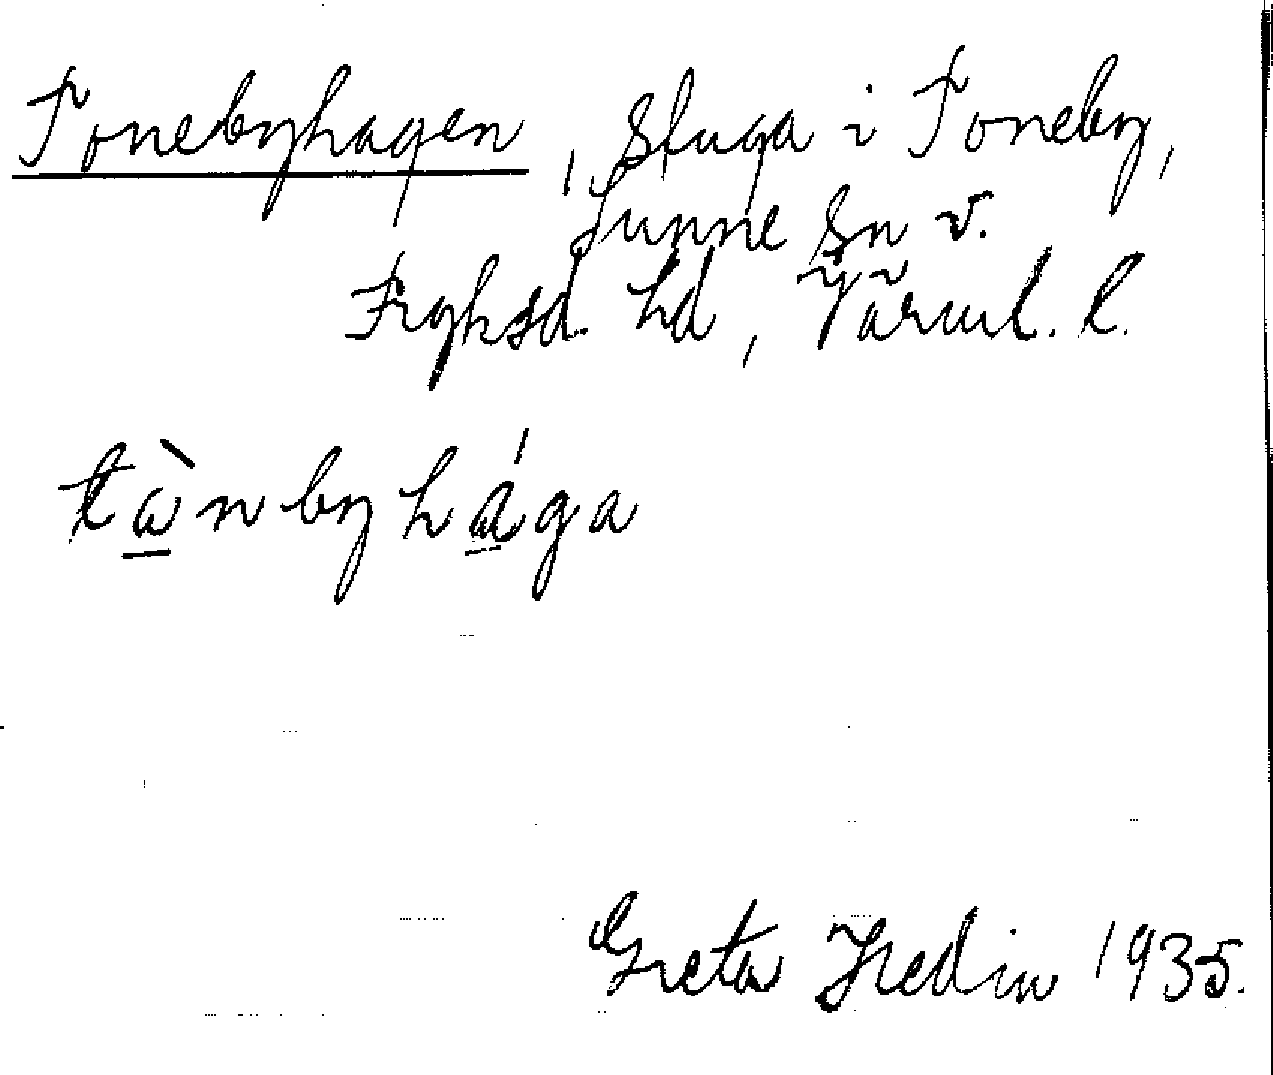 Tonebyhagen, Stuga i Toneby,
Sunne Sn v.
Fryksd. hd, Värml. l.
tὼ̲nbyhá̲ga
Greta Hedin 1935.